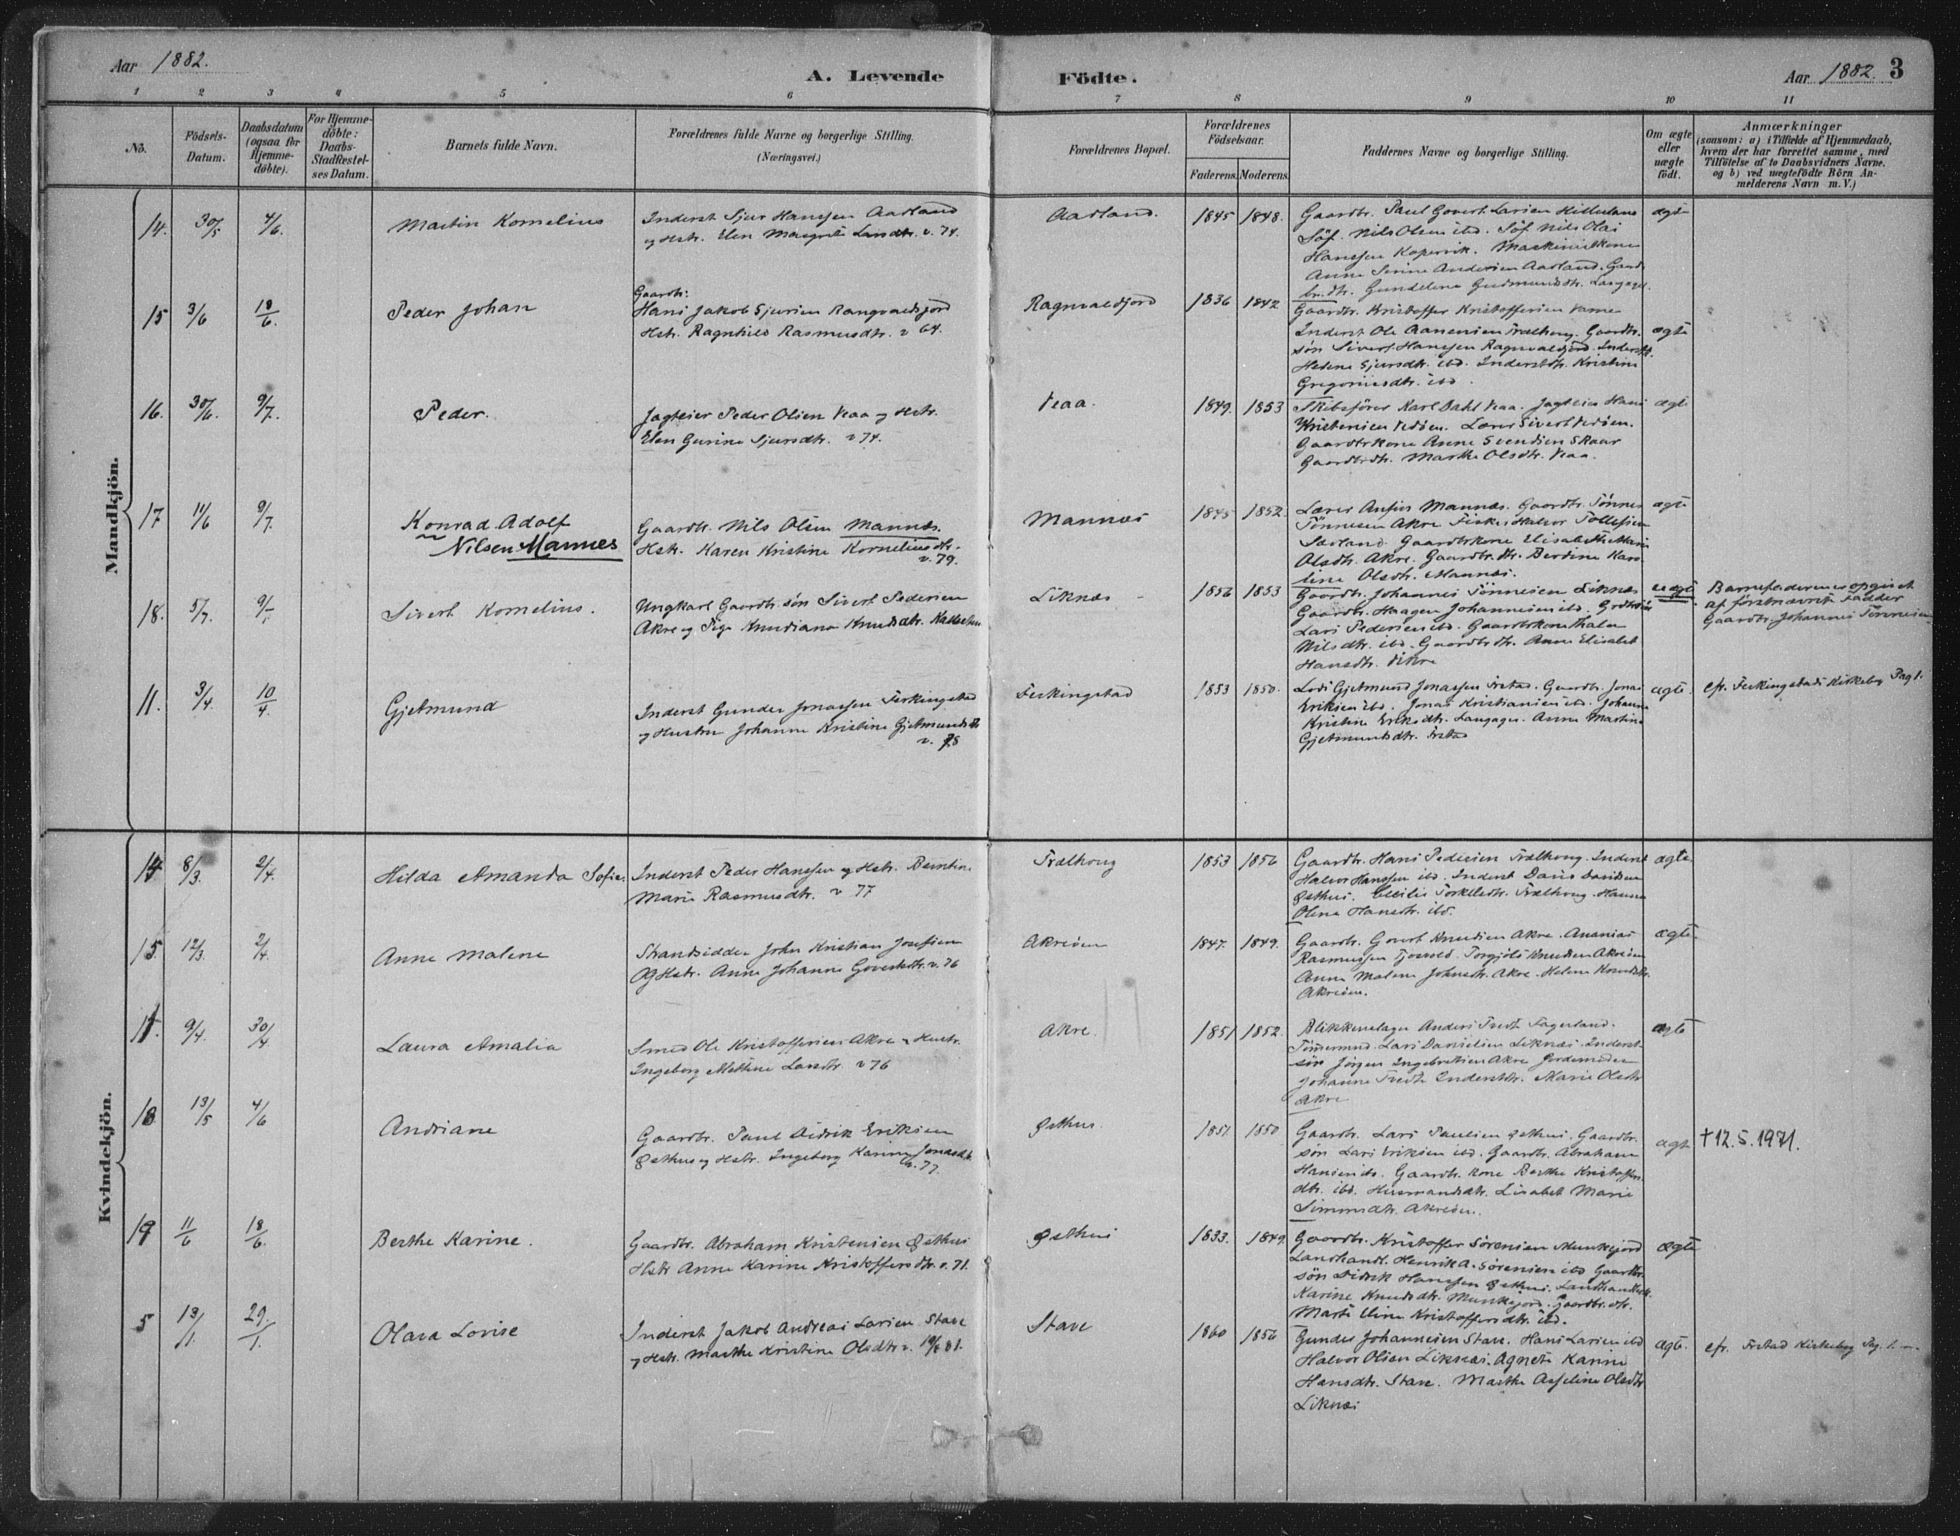 Aar 1882. A. Levende Födte. Aar 1882. 3
1 2 3 4 5 6 7 8 9 10 11
No. Födsels-Datum. Daabsdatum (ogsaa for Hjemmedöbte). For Hjemmedöbte: Daabs-Stadfæstelses Datum. Barnets fulde Navn. Forældrenes fulde Navne og borgerlige Stilling. (Næringsvei.) Forældrenes Bopæl. Forældrenes Födselsaar. Faderens. Moderens. Faddernes Navne og borgerlige Stilling. Om ægte eller uægte födt. Anmærkninger
(saasom: a) i Tilfælde af Hjemmedaab,
hvem der har forrettet samme, med
Tilföielse af to Daabsvidners Navne,
og b) ved uægtefödte Börn An-
melderens Navn m. V.)
Mandkjön.
14. 30/5 4/6. Martin Kornelius
Inderst Sjur Hanssen Aarland
og Hstr. Elen Margrete Larsdtr. v. 74.
Aarland. 1845 1848.
Gaardbr. Paul Govert Larsen Hilleland
Söf. Nils Olsen ibd. Söf. Nils Olai
Hanssen Kopervik. Maskinistkone
Anne Serine Andersen Aarland. Gaard-
br.dtr. Gundelena Gudmundsdtr. Langager.
ægte
15 3/6 18/6. Peder Johan
Gaardbr.
Hans Jakob Sjursen Rangvaldsfjord
Hstr. Ragnhild Rasmusdtr. v 64.
Ragnvaldsfjord 1836 1842
Gaardbr. Kristoffer Kristoffersen
Inderst Ole Aanensen Trælhoug. Gaardbr.
sön Sivert Hanssen Ragnvaldsfjord. Inderst
Helene Sjursdtr. ibd. Inderstdtr. Kristine
Gregoriusdtr. ibd.
ægte
16. 30/6. 9/7. Peder.
Jagteier Peder Olsen Veaa og Hstr.
Elen Gurine Sjursdtr. v 74.
Veaa. 1849. 1853
Skibsförer Karl Dahl Veaa. Jagteier Hans
Kristensen Vedöen. Lærer Sivert Vedöen.
Gaardbrkone Anne Svendsen Skaar
Gaardbrdtr. Marthe Olsdtr. Veaa.
ægte
17. 11/6 9/7. Konrad Adolf
Nilsen Mannes
Gaardbr. Nils Olsen Mannæs.
Hstr. Karen Kristine Korneliusdtr.
v. 79.
Mannæs 1845 1852.
Lærer Anfin Mannæs. Gaardbr. Tönnes
Tönnesen Akre. Fisker Halvor Tollefsen
Sævland. Gaardbrkone Elisabeth Maria
Olsdtr. Akre. Gaardbr.dtr. Berdine Karo-
line Olsdtr. Mannæs.
ægte
18. 5/7. 9/7 Sivert Kornelius.
Ungkarl Gaardbr. sön Sivert Pedersen
Akre og Pige Knudiane Knudsdtr.
Liknæs 1856 1853
Gaardbr. Johannes Tönnesen Liknæs
Gaardbr. Haagen Johannesen ibd.
Lars Pedersen ibd. Gaardbrkone Malene
Nilsdtr. ibd. Gaardbrdtr. Anne Elisabet
Hansdtr. Akre
uægte
Barnefaderen er opgivet
af förstnævnte Fadder
Gaardbr. Johannes Tönnesen
11. 3/4. 10/4. Gjetmund
Inderst Gunder Jonassen Ferkingstad
og Hustru Johanne Kristine Gjetmundsdtr.
v. 78
Ferkingstad 1853 1850.
Lods Gjetmund Jonassen Frstad. Gaardbr. Jonas
Eriksen ibd. Jonas Kristiansen ibd. Johanne
Kristine Eriksdtr. Langager. Anne Martine
Gjetmundsdtr. Frstad
ægte. cfr. Ferkingstads Kirkebog Pag 1.
Kvindekjön.
14 8/3. 2/4. Hilda Amanda Sofie.
Inderst Peder Hanssen og Hstr. Berntine
Marie Rasmusdtr. v 77
Trælhoug 1853 1856
Gaardbr. Hans Pedersen Trælhoug. Inderst
Halvor Hanssen ibd. Inderst David Davidsen
Østhus. Cecilie Torkelsdtr. Trælhoug. Hanna
Olene Hansdtr. ibd.
ægte
15 12/3. 2/4. Anne Malene
Strandsidder John Kristian Josefsen
Og Hstr. Anne Johanne Govertsdtr. v. 76
Akreöen 1847. 1849.
Gaardbr. Govert Knudsen Akre. Ananias
Rasmussen Tjosvold. Torgjels Knudsen Akreöen
Anne Malene Johnsdtr. Akre. Helene Knudsdtr.
Akreöen.
ægte.
17. 9/4. 30/4 Laura Amalia
Smed Ole Kristoffersen Akre og Hustr.
Ingeborg Mathine Larsdtr. v 76
Akre. 1851 1852.
Blikkenslager Anders Tvedt Fagerland.
Tömmermand Lars Danielsen Liknæs. Inderst-
sön Jörgen Ingebretsen Akre. Jordemoder
Johanne Tvedt. Inderstdtr. Marie Olsdtr.
Akre
ægte
18 13/5 4/6 Andriane
Gaardbr. Paul Didrik Eriksen
Østhus og Hstr. Ingeborg Karine Jonasdtr.
v. 77
Østhus. 1851. 1850
Gaardbr. Lars Paulsen Østhus. Gaardbr.
sön Lars Eriksen ibd. Gaardbr. Abraham
Hansen ibd. Gaardbr. kone Berthe Kristoffers-
dtr. ibd. Husmandsdtr. Lisabet Marie
Simonsdtr. Akreöen.
ægte † 12.5.1971.
19 11/6 18/6. Berthe Karine.
Gaardbr. Abraham Kristensen Østhus
Hstr Anne Karine Kristoffersdtr. v. 71.
Østhus 1833. 1849.
Gaardbr. Kristoffer Sörensen Munkejord
Landhandl. Henrik A. Sörensen ibd. Gaardbr.
sön Didrik Hanssen Østhus. Landhandlersk.
Karine Knudsdtr. Munkejord. Gaardbr.dtr.
Marte Eline Kristoffersdtr. ibd.
ægte
5 13/1. 29/1. Olava Lovise
Inderst Jakob Andreas Larsen Stave
og Hstr. Marthe Kristine Olsdtr v. 81.
Stave 1860 1856
Gunder Johannesen Stave. Hans Larsen ibd
Halvor Olsen Liknæs. Agnete Karine
Hansdtr. Stave. Marthe Asseline Olsdtr
Liknæs
ægte. cfr. Frstad Kirkebog Pag. 1.